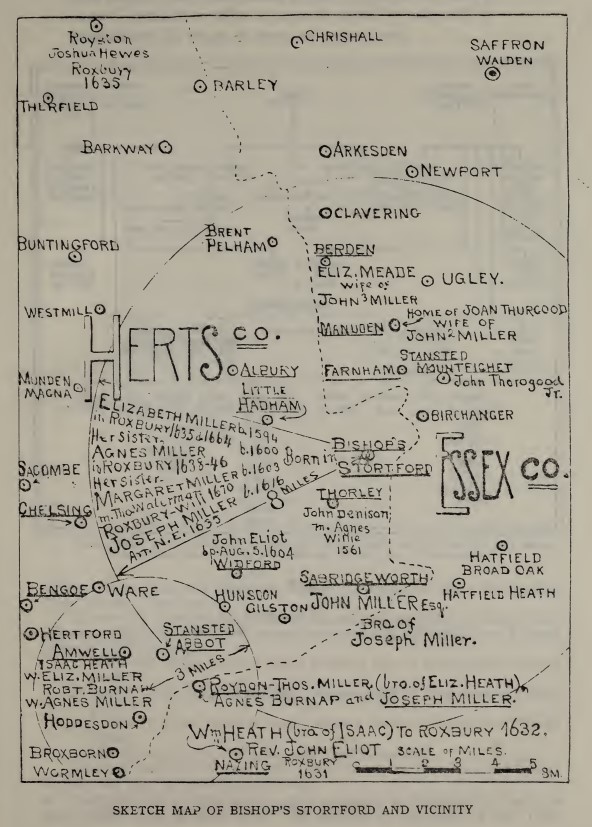 Royston
Joshua Hewes
Roxbury
1635
CHRISHALL
SAFFRON
WALDEN
BARLEY
THERFIELD
BARKWAY
ARKESDEN
NEWPORT
CLAVERING
BRENT
PELHAM
BUNTINGFORD
BERDEN
ELIZ. MEADE
wife of
JOHN 3 MILLER
UGLEY.
WESTMILL
MANUDEN
HOME OF JOAN THURGOOD
WIFE OF
JOHN 2 MILLER
HERTS CO.
STANSTED
MOUNTFIGHET
John Thorogood
Jr.
FARNHAM
ALBURY
MUNDEN
MAGNA
LITTLE
HADHAM
BIRCHANGER
ELIZABETH MILLER b. 1594
in ROXBURY 1635 d. 1664
Her sister.
AGNES MILLER b. 1600
in ROXBURY 1638-46
Her sister.
MARGARET MILLER b. 1603
m. Tho Waterman
ROXBURY-Will 1670
JOSEPH MILLER b. 1616
Arr. N.E. 1635
Born in
BISHOP'S
STORTFORD
8 MILES
ESSEX CO.
SACOMBE
CHELSING
THORLEY
John Denison
m. Agnes
Willie
1561
John Eliot
bp. AUG. 5. 1604
WIDFORD
HATFIELD
BROAD OAK
HATFIELD HEATH
SABRIDGEWORTH
JOHN MILLER Esq.
Bro of
Joseph Miller.
BENGOE
WARE
HUNSDON
GILSTON
HERTFORD
STANSTED
ABBOT
AMWELL
ISAAC HEATH
W. ELIZ. MILLER
ROBT. BURNAP
W. AGNES MILLER
3 MILES
ROYDON-THOS. MILLER. (bro. of ELIZ. HEATH)
AGNES BURNAP and JOSEPH MILLER.
HODDESDON
Wm HEATH (bro of ISAAC) TO ROXBURY 1632.
BROXBORN
REV. JOHN ELIOT
NAZING ROXBURY
1631
SCALE OF MILES.
0 1 2 3 4 5
5M.
WORMLEY
SKETCH MAP OF BISHOP'S STORTFORD AND VICINITY